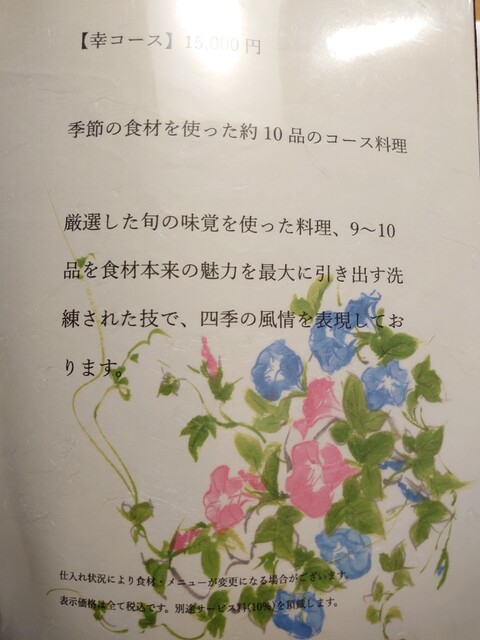 【幸コース】15,000円
季節の食材を使った約10品のコース料理
厳選した旬の味覚を使った料理、9〜10
品を食材本来の魅力を最大に引き出す洗
練された技で、四季の風情を表現してお
ります。
仕入れ状況により食材・メニューが変更になる場合がございます。
表示価格は全て税込です。別途サービス料(10%)を頂戴します。